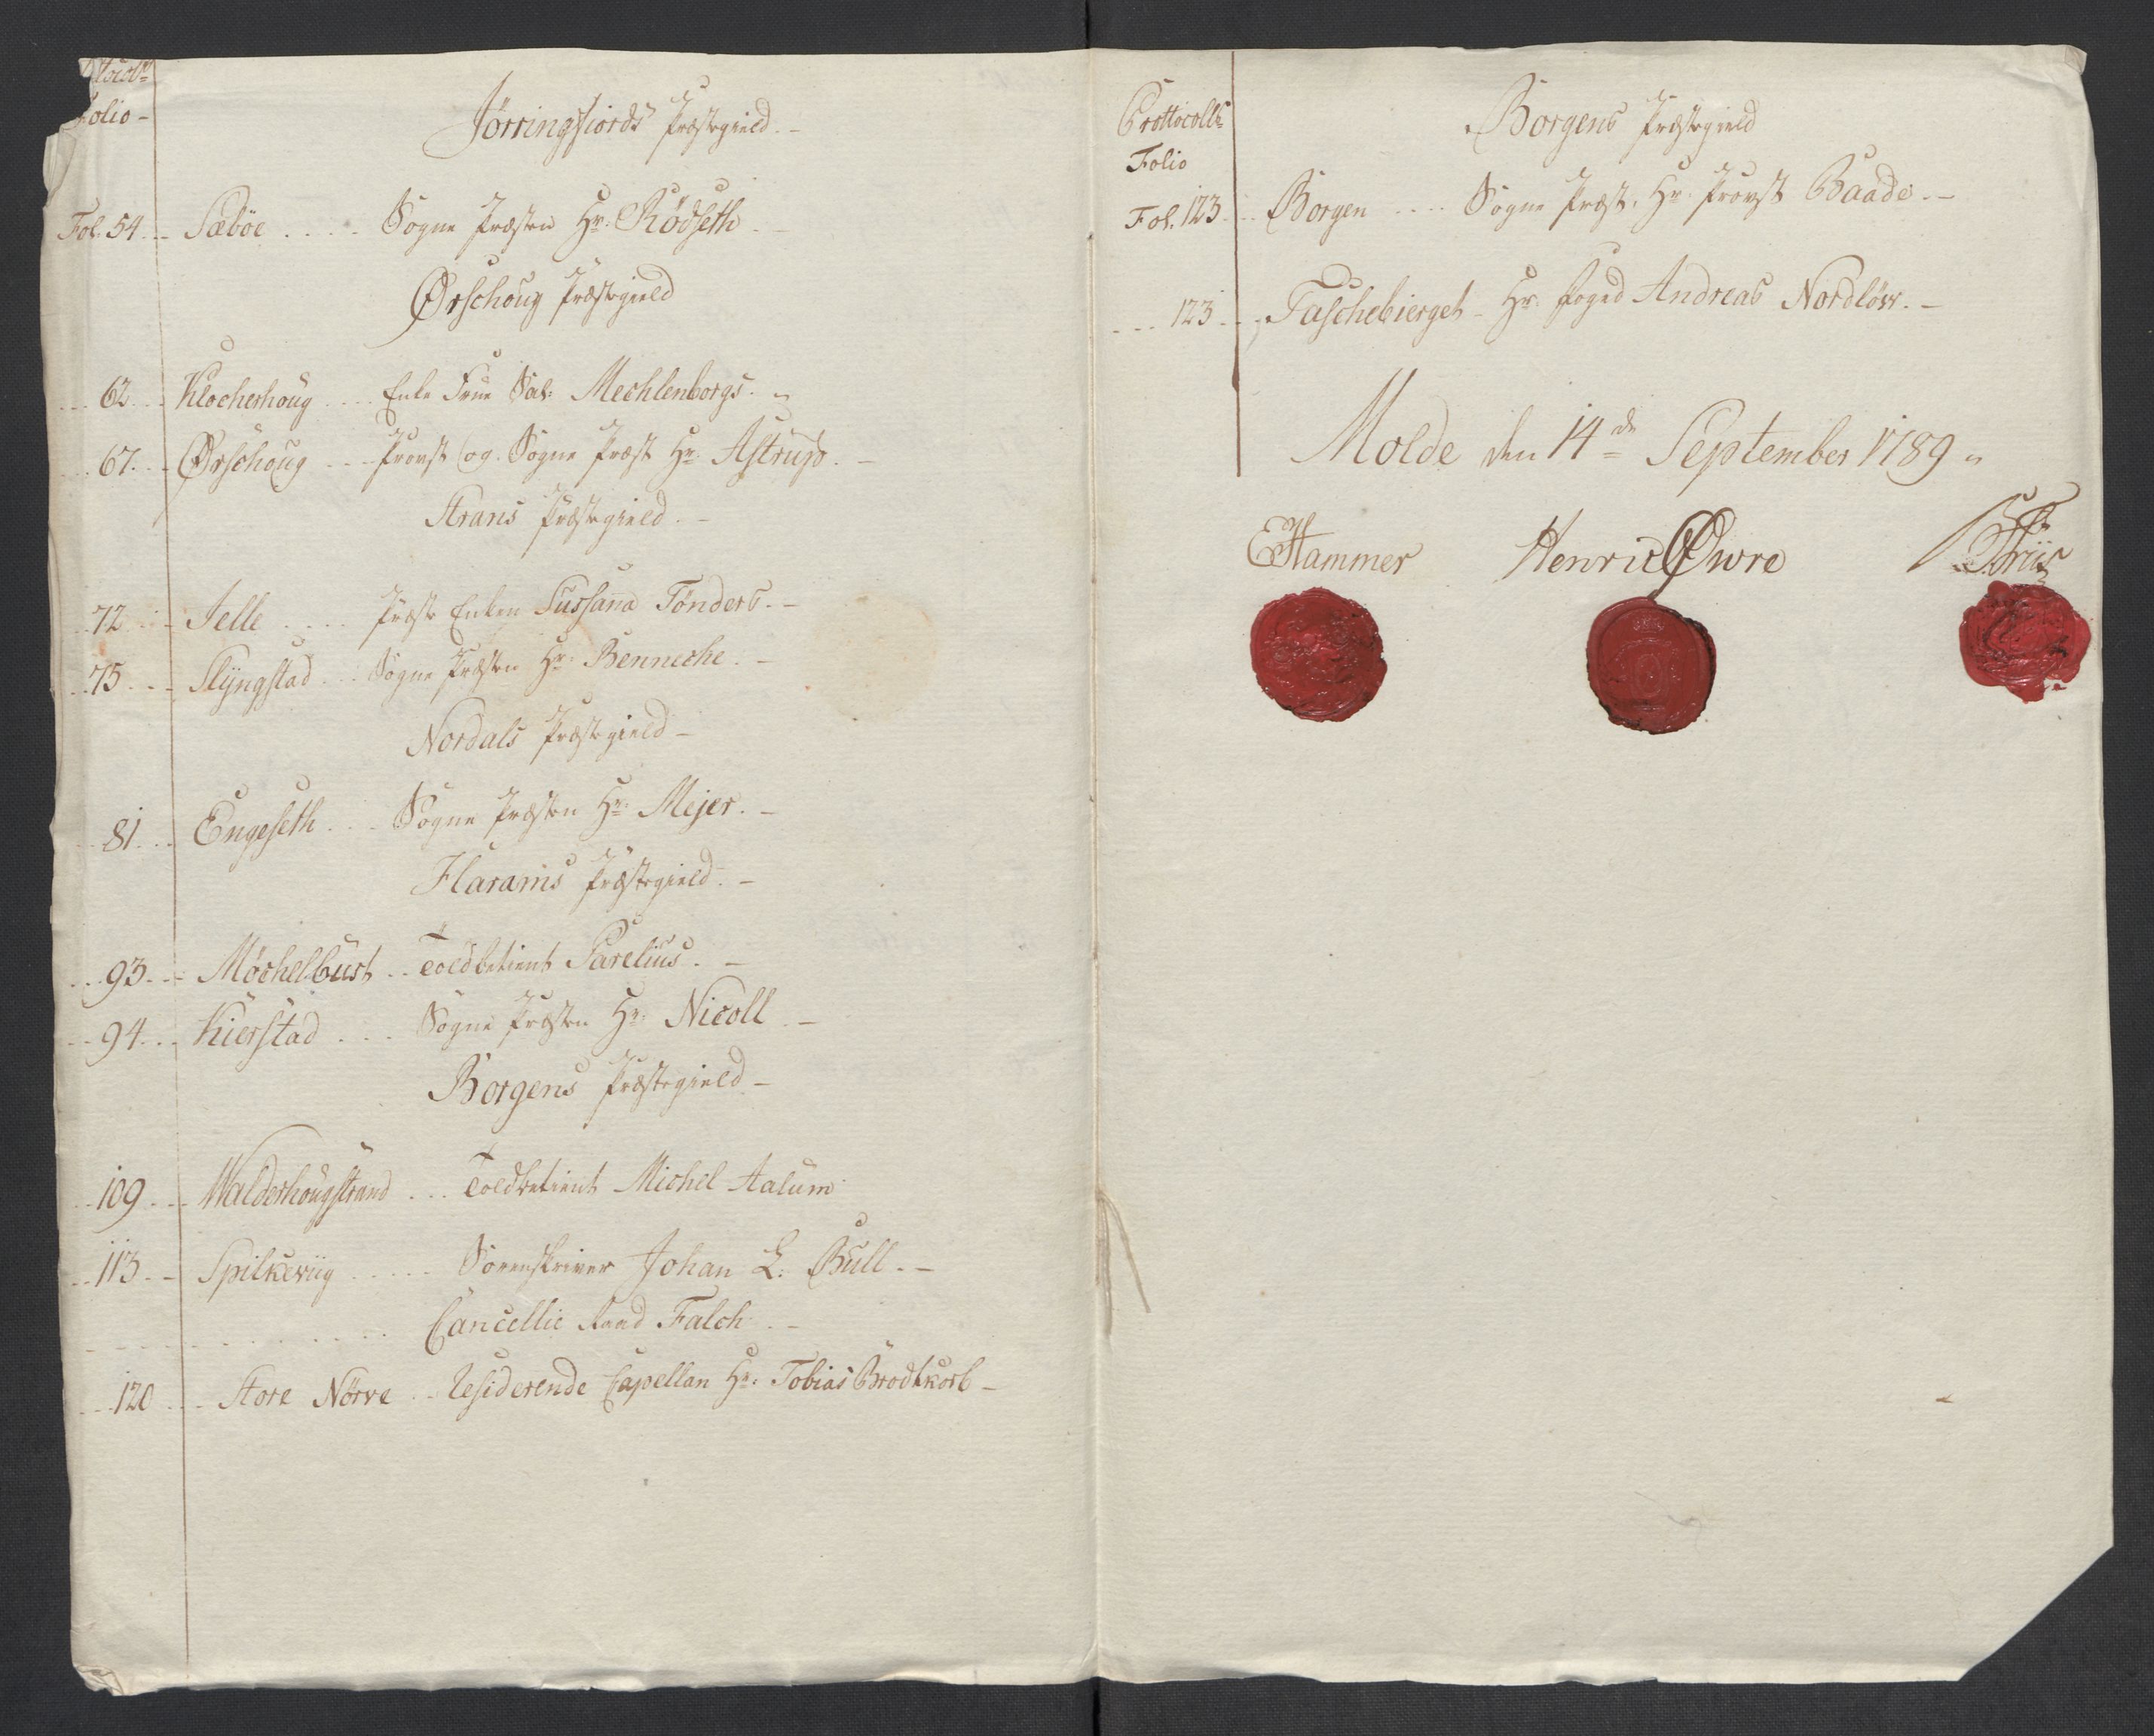 Folio -
Jörringfiords Præstegield. -
Fol. 54 - Sæböe . . . . Sogne Præsten Hr: Rödseth -
Ørschoug Præstegield
62 - Klocherhoug . . . Enke Frue Sal: Mechlenborgs.
67. - Ørschoug . . . Provst og Sogne Præst Hr: Astrup. -
Strans Præstegield. -
72 - Jelle . . . . Præste Enken Sussanna Tönders. -
75 - Slyngstad . . . Sogne Præsten Hr: Benneche. -
Nordals Præstegield -
81 - Engeseth . . . Sogne Præsten Hr: Mejer. -
Harams Præstegield. -
93 - Möchelbust . . Toldbetient Parelius. -
94 - Kierstad . . . Sogne Præsten Hr: Nicoll. -
Borgens Præstegield -
109 - Walderhougstrand . . . Toldbetient Michel Aalum
113 - Spilkeviig . . . . . Sorenskriver Johan L. Bull. -
. . . . . . . . Cancellie Raad Falch. -
120 - Store Nörve . . Residerende Capellan Hr: Tobias Brodtkorb -
Prottocolls
Folio
Borgens Præstegield
Fol. 123 . . Borgen . . . . Sogne Præst, Hr. Provst Baade. -
123 . . Taschebierget - Hr. Foged Andreas Nordlöw. -
Molde den 14de September 1789
EHammer Henric Øwre